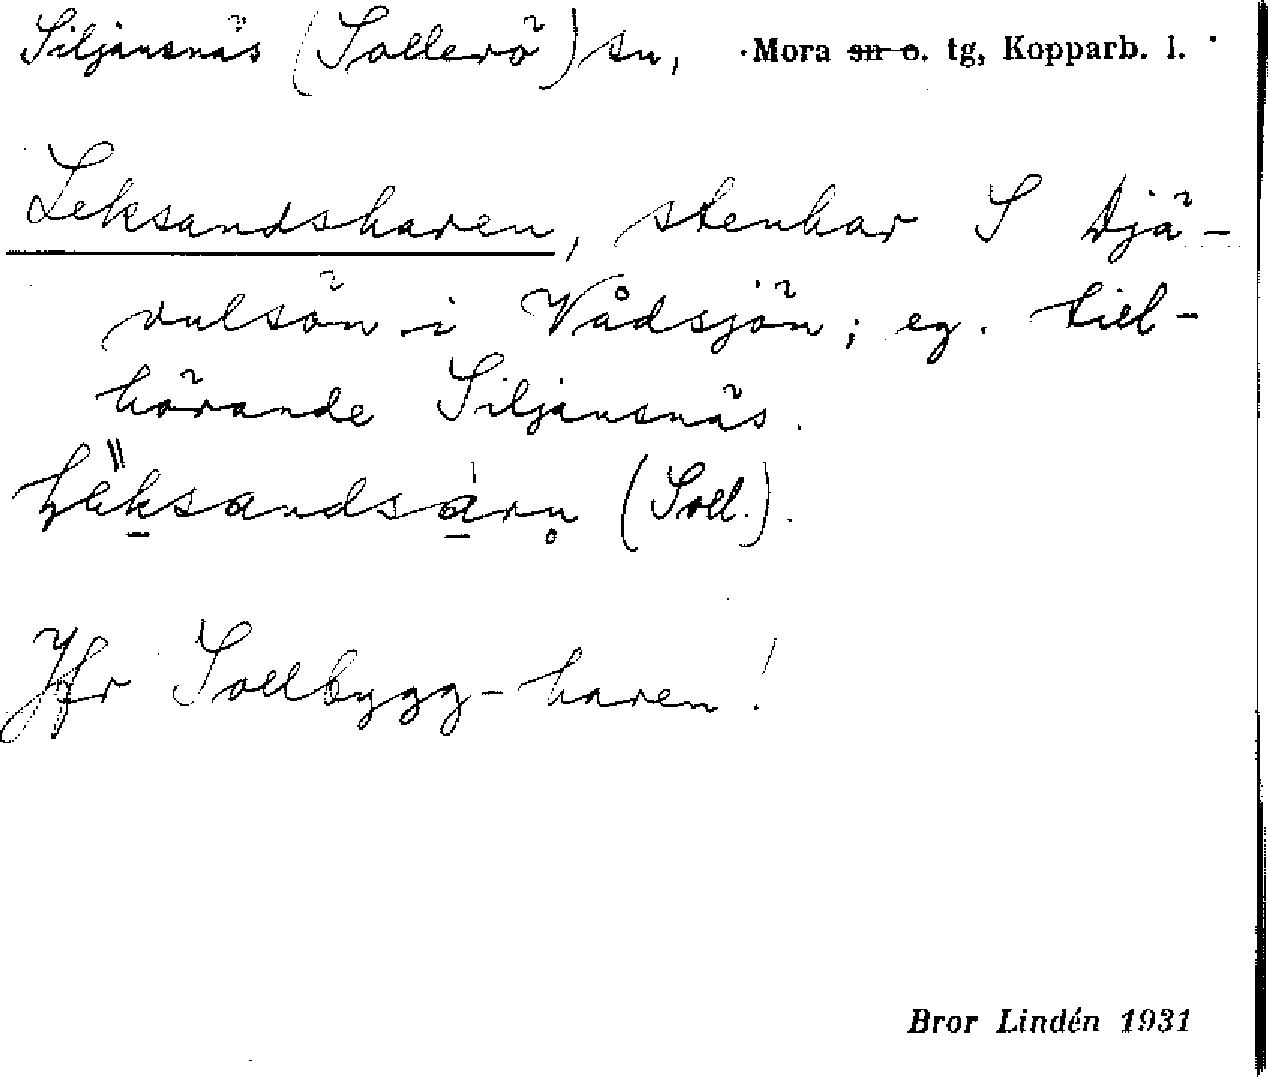 Siljansnäs (Sollerö) sn, Mora sn o. tg, Kopparb. l.
Leksandsharen, stenhar S Djä-
vulsön i Vådsjön; eg. till-
hörande Siljansnäs.
(Soll.).
Jfr Sollbygg-haren!
Bror Lindén 1931